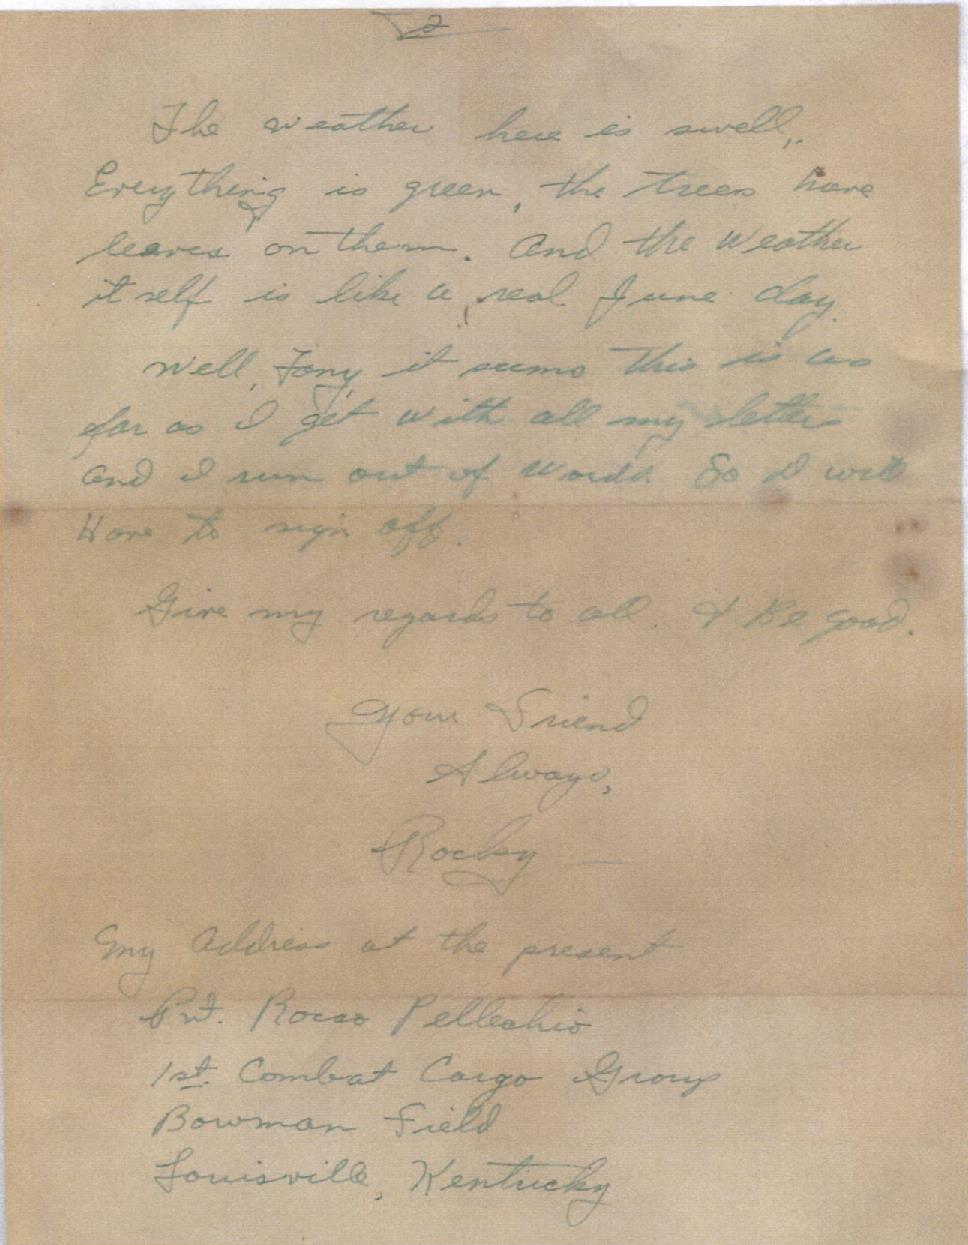 2
The weather here is swell,.
Everything is green, the trees have
leaves on them. And the weather
itself is like a real June day.
Well, Tony, it seems this is as
far as I get with all my letters
and I run out of words. So I will
Have to sign off.
Give my regards to all. & Be good.
Your Friend
Always,
Rocky —
My Address at the present
Pvt. Rocco Pellechio
1st. Combat Cargo Group
Bowman Field
Louisville, Kentucky